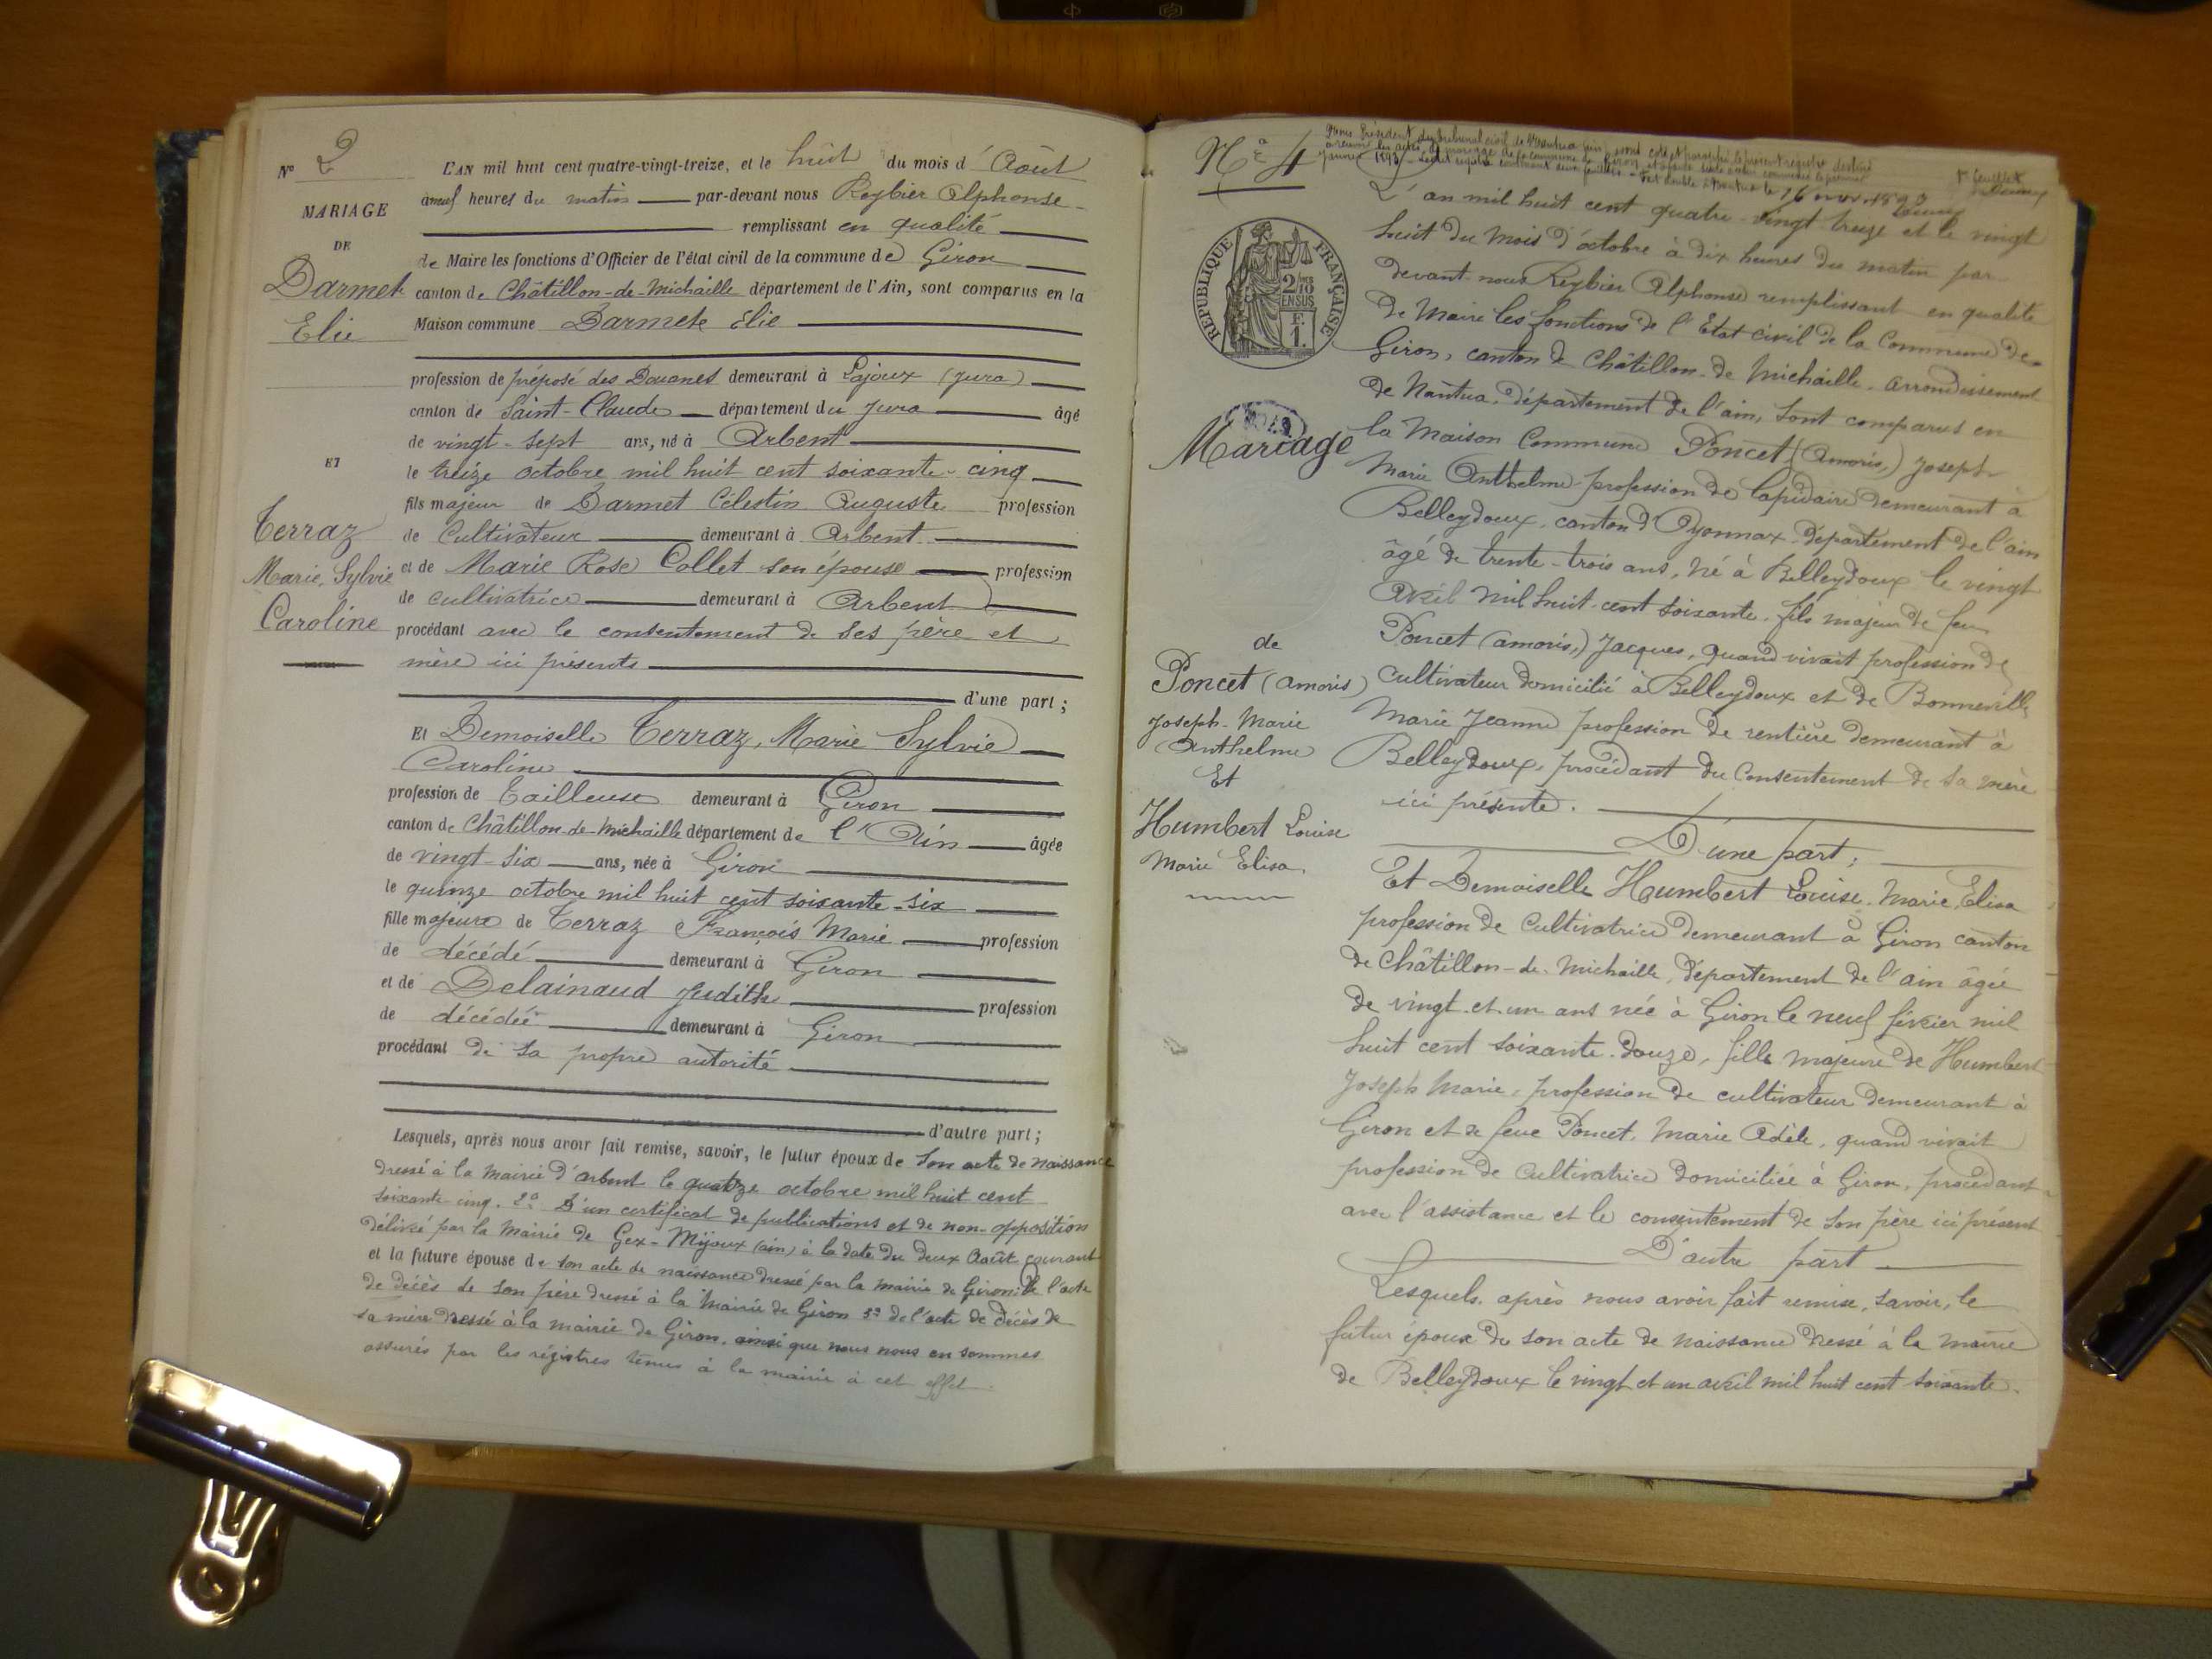 N° 2
MARIAGE
DE
Darmet
Elie
ET
Terraz
Marie, Sylvie
Caroline
L'AN mil huit cent quatre-vingt-treize, et le huit du mois d'Août
à neuf heures du matin par-devant nous Reybier Alphonse
remplissant en qualité
de Maire les fonctions d'Officier de l'état civil de la commune de Giron
canton de Châtillon-de-Michaille département de l'Ain, sont comparus en la
Maison commune Darmet Elie
profession de préposé des Douanes demeurant à Lajoux (Jura)
canton de Saint-Claude département du Jura âgé
de vingt-sept ans, né à Arbent
le treize octobre mil huit cent soixante-cinq
fils majeur de Darmet Célestin Auguste profession
de Cultivateur demeurant à Arbent
et de Marie Rose Collet son épouse profession
de cultivatrice demeurant à Arbent
procédant avec le consentement de ses père et
mère ici présents
d'une part ;
Et Demoiselle Terraz, Marie Sylvie
Caroline
profession de Tailleuse demeurant à Giron
canton de Châtillon-de-Michaille département de l'Ain âgée
de vingt-six ans, née à Giron
le quinze octobre mil huit cent soixante-six
fille majeure de Terraz François Marie profession
de décédé demeurant à Giron
et de Delainaud Judith profession
de décédée demeurant à Giron
procédant de sa propre autorité
d'autre part ;
Lesquels, après nous avoir fait remise, savoir, le futur époux de son acte de naissance
dressé à la Mairie d'arbent le quatorze octobre mil huit cent
soixante-cinq. 2° D'un certificat de publications et de non-opposition
délivré par la Mairie de Gex-Mijoux (ain) à la date du deux Août courant
et la future épouse de son acte de naissance dressé par la mairie de Giron: De l'acte
de décès de son père dressé à la Mairie de Giron 3° de l'acte de décès de
sa mère dressé à la mairie de Giron, ainsi que nous nous en sommes
assurés par les régistres tenus à la mairie à cet effet.
N° 4
Président du tribunal civil de Nantua
mariage de la commune de Giron
janvier 1893
le 16 nov. 1892
1er feuillet
RÉPUBLIQUE FRANÇAISE
2/10
EN SUS
F.
1.
Mariage
de
Poncet (amoris)
Joseph-Marie
Anthelme
Et
Humbert Louise
Marie Elisa.
L'an mil huit cent quatre-vingt treize et le vingt
huit du Mois d'octobre à dix heures du matin par
devant nous Reybier Alphonse remplissant en qualité
de Maire les fonctions de l'Etat civil de la Commune de
Giron, canton de Châtillon-de-Michaille, arrondissement
de Nantua, Département de l'ain, sont comparus en
la Maison Commune Poncet (Amoris,) Joseph
Marie Anthelme profession de lapidaire demeurant à
Belleydoux, canton d'Oyonnax département de l'ain
âgé de trente-trois ans, né à Belleydoux le vingt
Avril mil huit-cent soixante, fils majeur de feu
Poncet (amoris,) Jacques, quand vivait profession de
cultivateur domicilié à Belleydoux et de Bonneville
Marie Jeanne profession de rentière demeurant à
Belleydoux, procédant du Consentement de sa mère
ici présente.
D'une part ;
Et Demoiselle Humbert Louise, Marie, Elisa
profession de Cultivatrice demeurant à Giron canton
de Châtillon-de-Michaille, département de l'ain âgée
de vingt-et-un ans née à Giron le neuf février mil
huit cent soixante-douze, fille majeure de Humbert
Joseph Marie, profession de cultivateur demeurant à
Giron et de feue Poncet, Marie Adèle, quand vivait
profession de Cultivatrice domiciliée à Giron, procédant
avec l'assistance et le consentement de son père ici présent
D'autre part
Lesquels, après nous avoir fait remise, savoir, le
futur époux de son acte de naissance dressé à la mairie
de Belleydoux le vingt et un avril mil huit cent soixante.